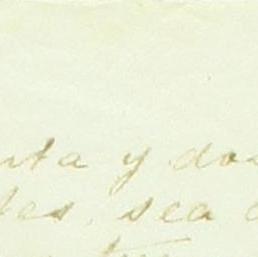 nta y dos
tes, sea